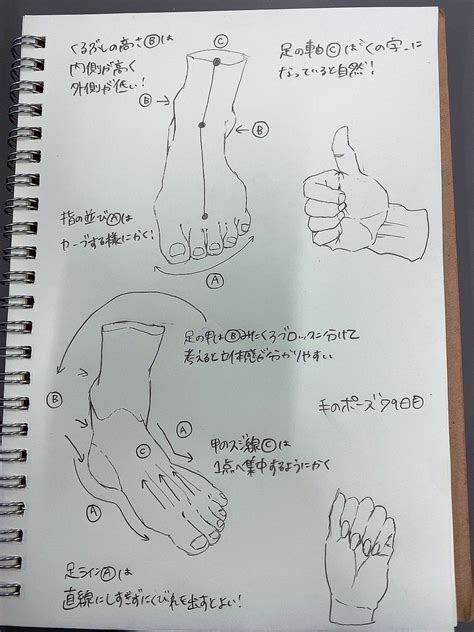 くるぶしの高さⒷは
内側が高く
外側が低い!
Ⓒ
足の軸Ⓒは「くの字」に
なっていると自然!
Ⓑ
Ⓑ
指の並びⒶは
カーブする様にかく!
Ⓐ
足の甲はⒷみたくブロックに分けて
考えると立体感が分かりやすい
Ⓑ
手のポーズ79日目
Ⓒ
Ⓐ
甲のスジ線Ⓒは
1点へ集中するようにかく
Ⓐ
足ラインⒶは
直線にしすぎずにくびれを出すとよい!